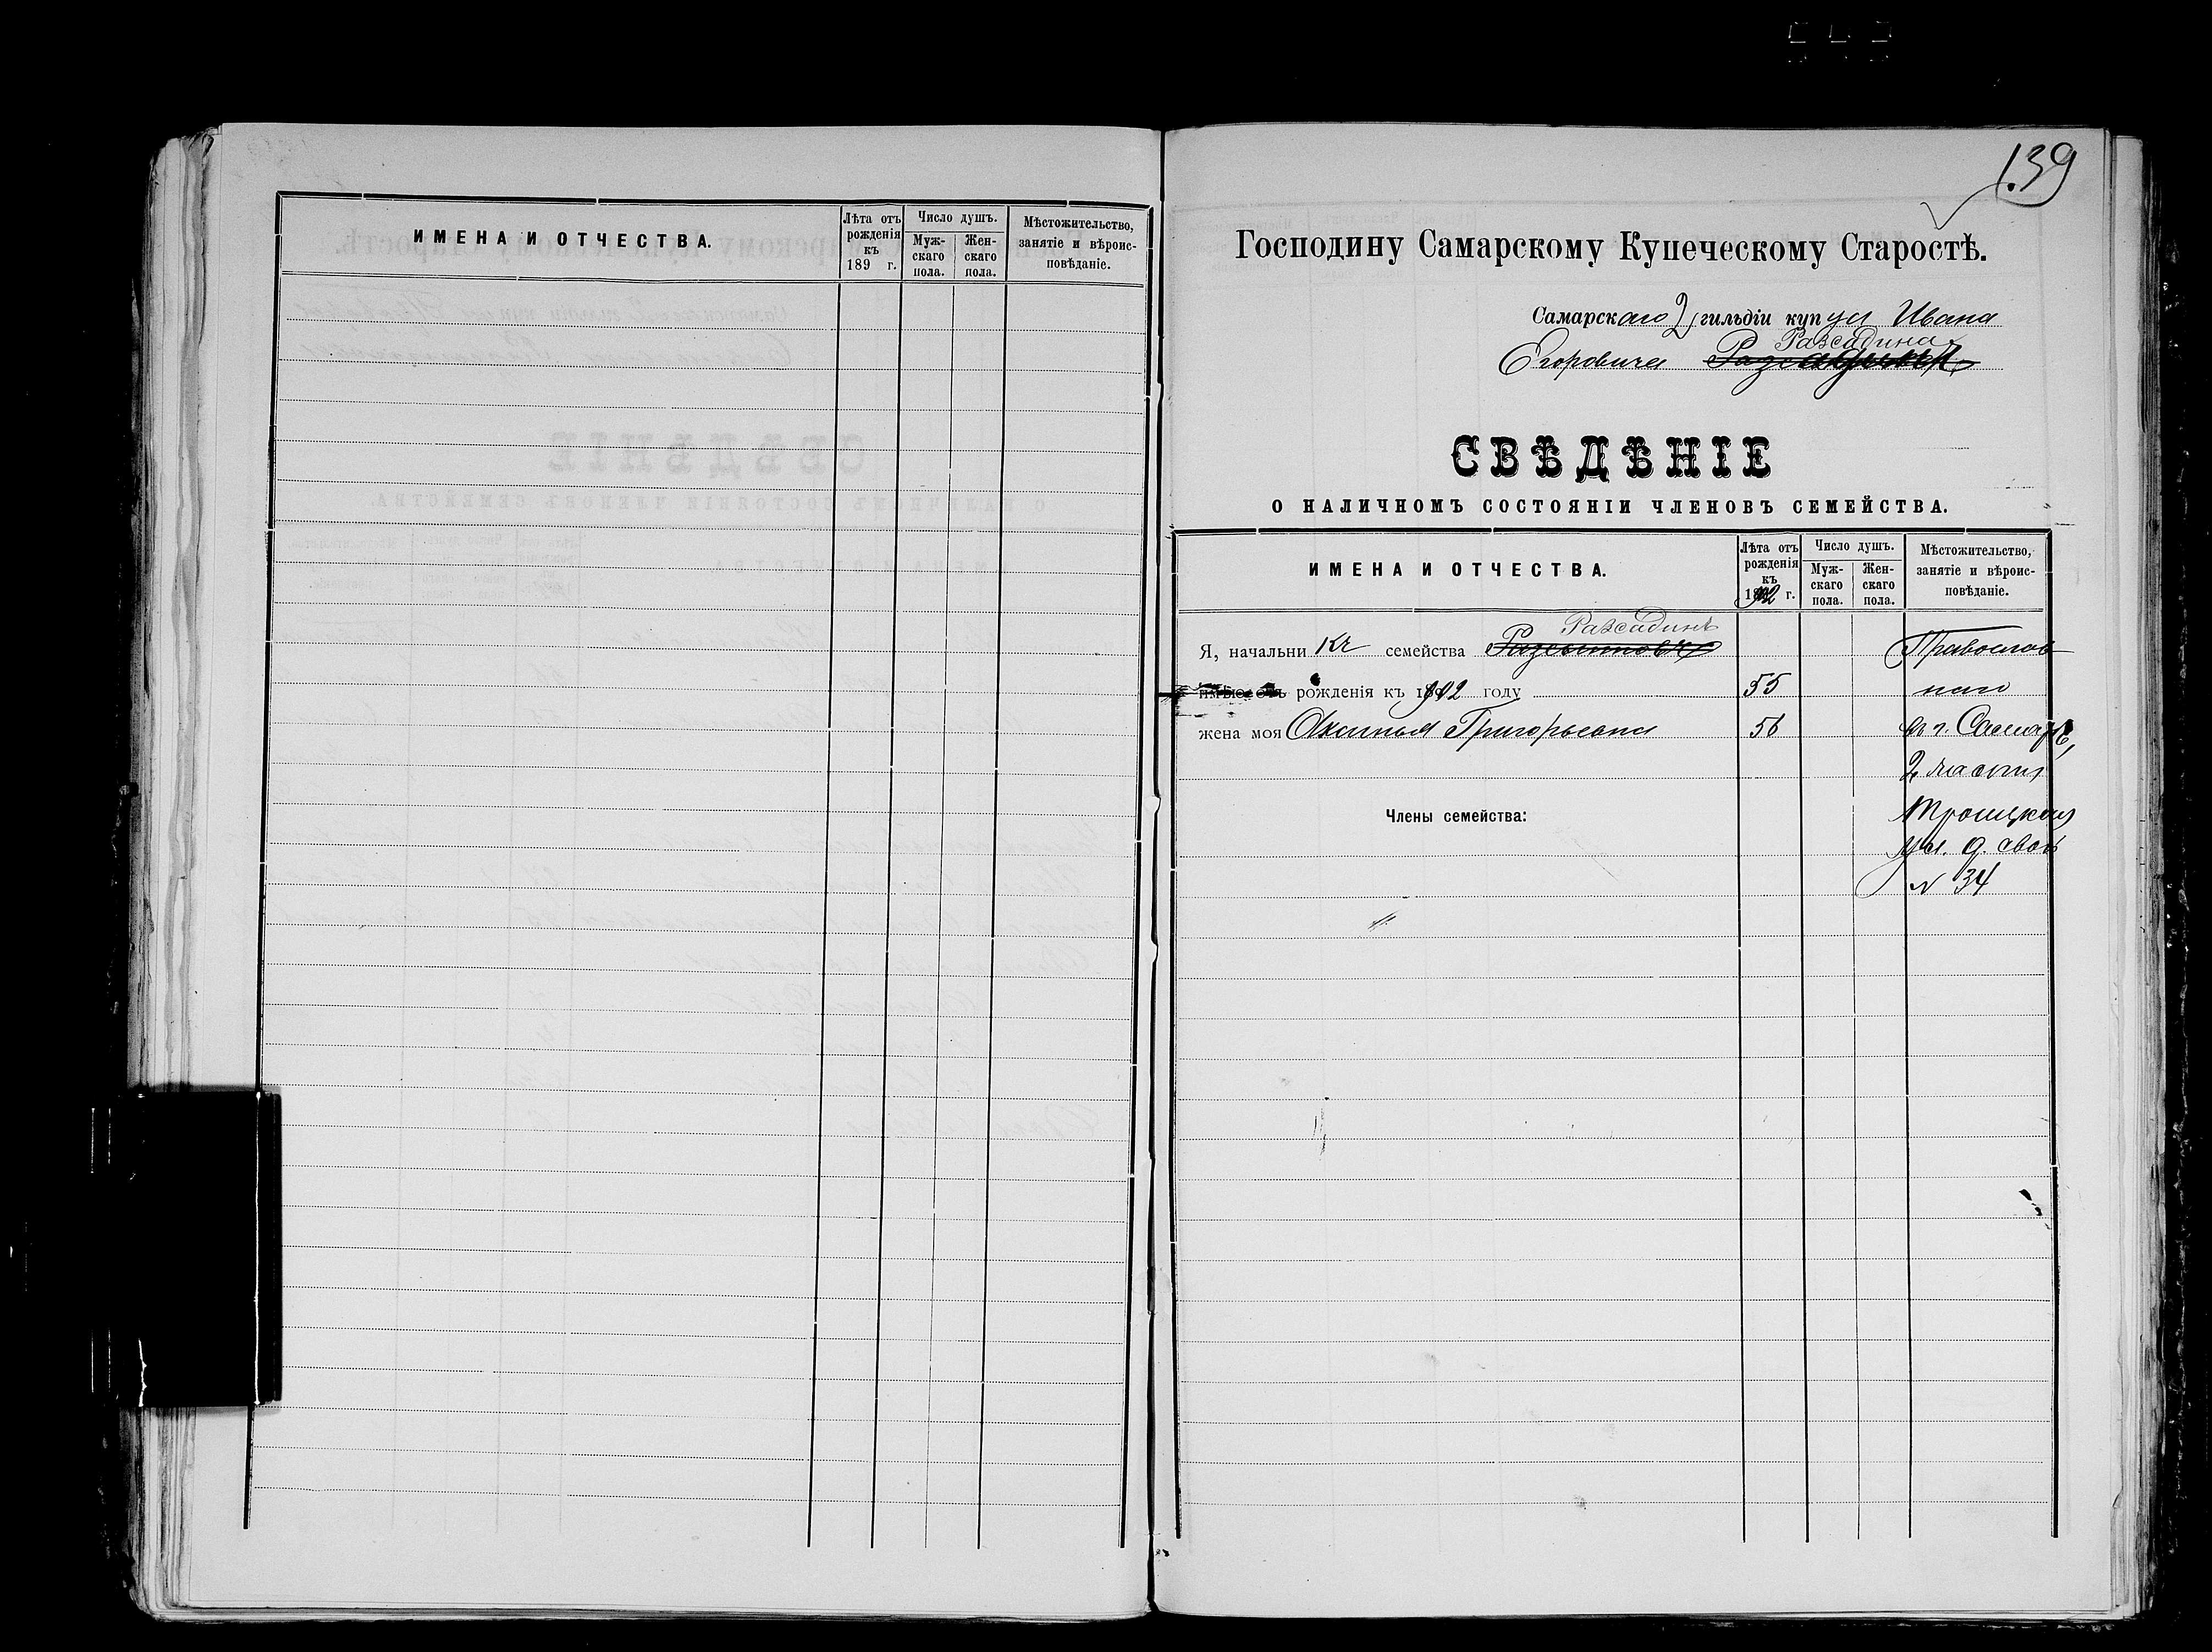 ИМЕНА И ОТЧЕСТВА.
Лѣта отъ рожденія къ 189 г.
Число душъ.
Муж-скаго пола.
Жен-скаго пола.
Мѣстожительство, занятіе и вѣроис-повѣданіе.
139
Господину Самарскому Купеческому Старостѣ.
Самарскаго 2 гильдіи купца Ивана
Разсадина
Егоровича
СВѢДѢНІЕ
О НАЛИЧНОМЪ СОСТОЯНІИ ЧЛЕНОВЪ СЕМЕЙСТВА.
ИМЕНА И ОТЧЕСТВА.
Лѣта отъ рожденія къ 1902 г.
Число душъ.
Муж-скаго пола.
Жен-скаго пола.
Мѣстожительство, занятіе и вѣроис-повѣданіе.
Разсадинъ
Я, начальникъ семейства Православ
рожденія къ 1902 году 55 наго
жена моя Аксинья Григорьевна 56 въ г. Самарѣ,
2 части
Троицкая
Члены семейства:
ул. д. свой
№ 34